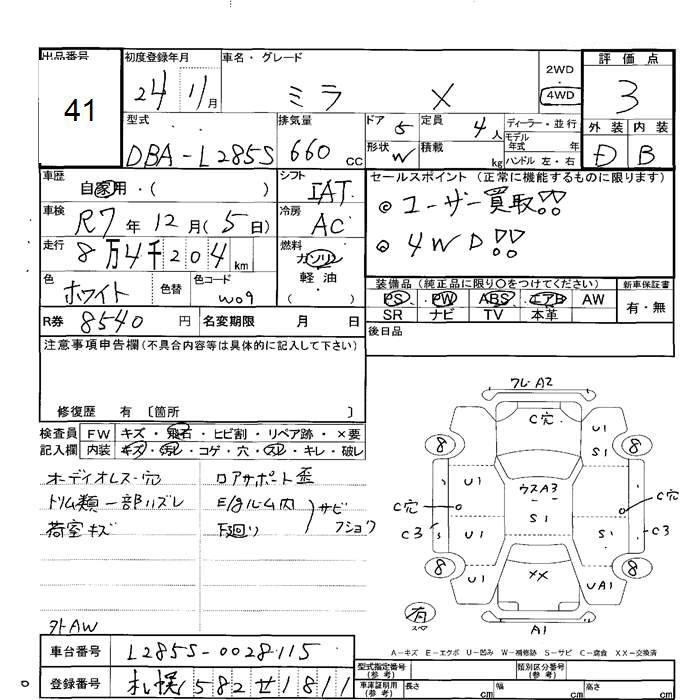 出品番号 初度登録年月 車名・グレード 評価点
41 24 11月 ミラ X 2WD 4WD 3
型式 排気量 ドア 5 定員 4人 ディーラー・並行 外装 内装
DBA-L285S 660cc 形状 W 積載 kg モデル年式 年 ハンドル 左・右 D B
車歴 自家用・( ) シフト IAT セールスポイント(正常に機能するものに限ります)
車検 R7年12月(5日) 冷房 AC ◎ユーザー買取!!
走行 8万4千204km 燃料 ガソリン ◎4WD!!
色 ホワイト 色替 色コード W09 軽油 ( )
装備品(純正品に限り○をつけてください) 新車保証書
PS・PW・ABS・エアB・AW 有・無
SR ナビ TV 本革
R券 8540円 名変期限 月 日 後日品
注意事項申告欄(不具合内容等は具体的に記入して下さい)
修復歴 有 〔箇所 〕
検査員 FW キズ・飛石・ヒビ割・リペア跡・×要
記入欄 内装 キズ・汚レ・コゲ・穴・スレ・キレ・破レ
オーディオレス・穴 ロアサポート歪
トリム類一部ハズレ E/gルーム内
荷室キズ 下廻り サビフショク
外AW
フレ・A2
C穴 U1
8 S1 8
U1 ウスA3 C穴
C穴 S1
C3 U1 S1 C3
8 U1 XX UA1 8
有 スペ A1
A-キズ E-エクボ U-凹み W-補修跡 S-サビ C-腐食 XX-交換済
車台番号 L285S-0028115 型式指定番号(参考) 類別区分番号(参考)
登録番号 札幌582せ1811 車庫証明用(参考) 長さ cm 幅 cm 高さ cm